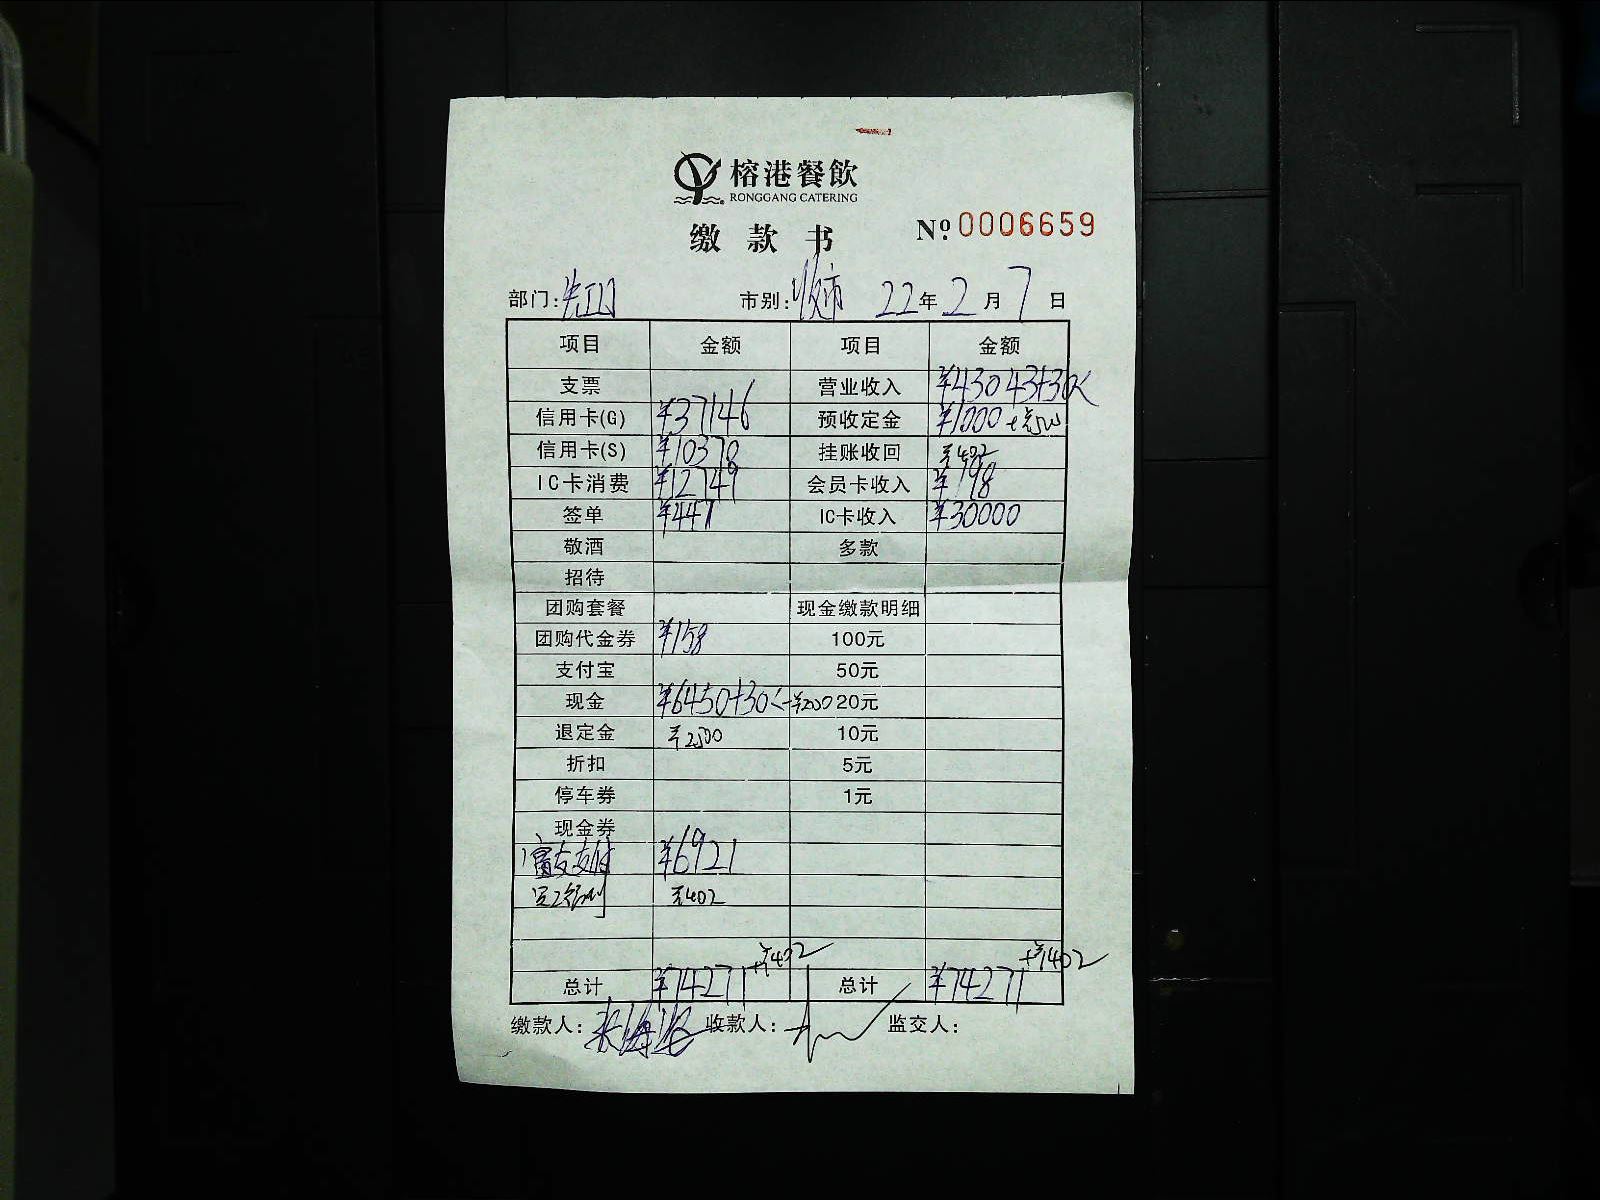 榕港餐飲
RONGGANG CATERING
缴款书
Nº 0006659
部门: 市别:收市 22年2月7日
项目 金额 项目 金额
支票 营业收入 ¥43043+30
信用卡(G) ¥37146 预收定金 ¥1000
信用卡(S) ¥10370 挂账收回 ¥402
IC卡消费 ¥12749 会员卡收入 ¥198
签单 ¥447 IC卡收入 ¥30000
敬酒 多款
招待
团购套餐 现金缴款明细
团购代金券 ¥158 100元
支付宝 50元
现金 ¥6450+30 20元
退定金 ¥2500 10元
折扣 5元
停车券 1元
现金券
富友支付 ¥6921
¥402
+¥402 +¥402
总计 ¥74271 总计 ¥74271
缴款人: 收款人: 监交人: